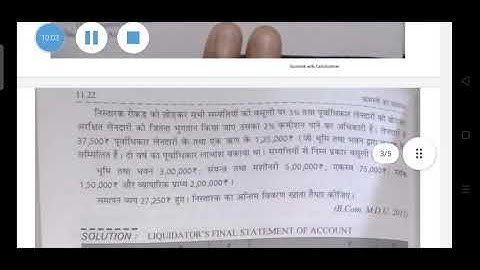 10:03
Scanned with CamScanner
11.22
निस्तारक रोकड़ को छोड़कर सभी सम्पत्तियों की वसूली पर 3% तथा पूर्वाधिकार लेनदारों को छोड़कर
अरक्षित लेनदारों को जितना भुगतान किया जाए उसका 2% कमीशन पाने का अधिकारी है। लेनदारों
37,500₹ पूर्वाधिकार लेनदारों के तथा एक ऋण के 1,25,000₹ (जो भूमि तथा भवन द्वारा
सम्मिलित हैं। दो वर्ष का पूर्वाधिकार लाभांश बकाया था। सम्पत्तियों से निम्न प्रकार वसूली
3/5
भूमि तथा भवन 3,00,000₹; संयन्त्र तथा मशीनरी 5,00,000₹; एकस्व 75,000₹;
1,50,000₹ और व्यापारिक प्राप्य 2,00,000₹।
समापन व्यय 27,250₹ हुए। निस्तारक का अन्तिम विवरण खाता तैयार कीजिए।
(B.Com. M.D.U. 2011)
SOLUTION : LIQUIDATOR'S FINAL STATEMENT OF ACCOUNT